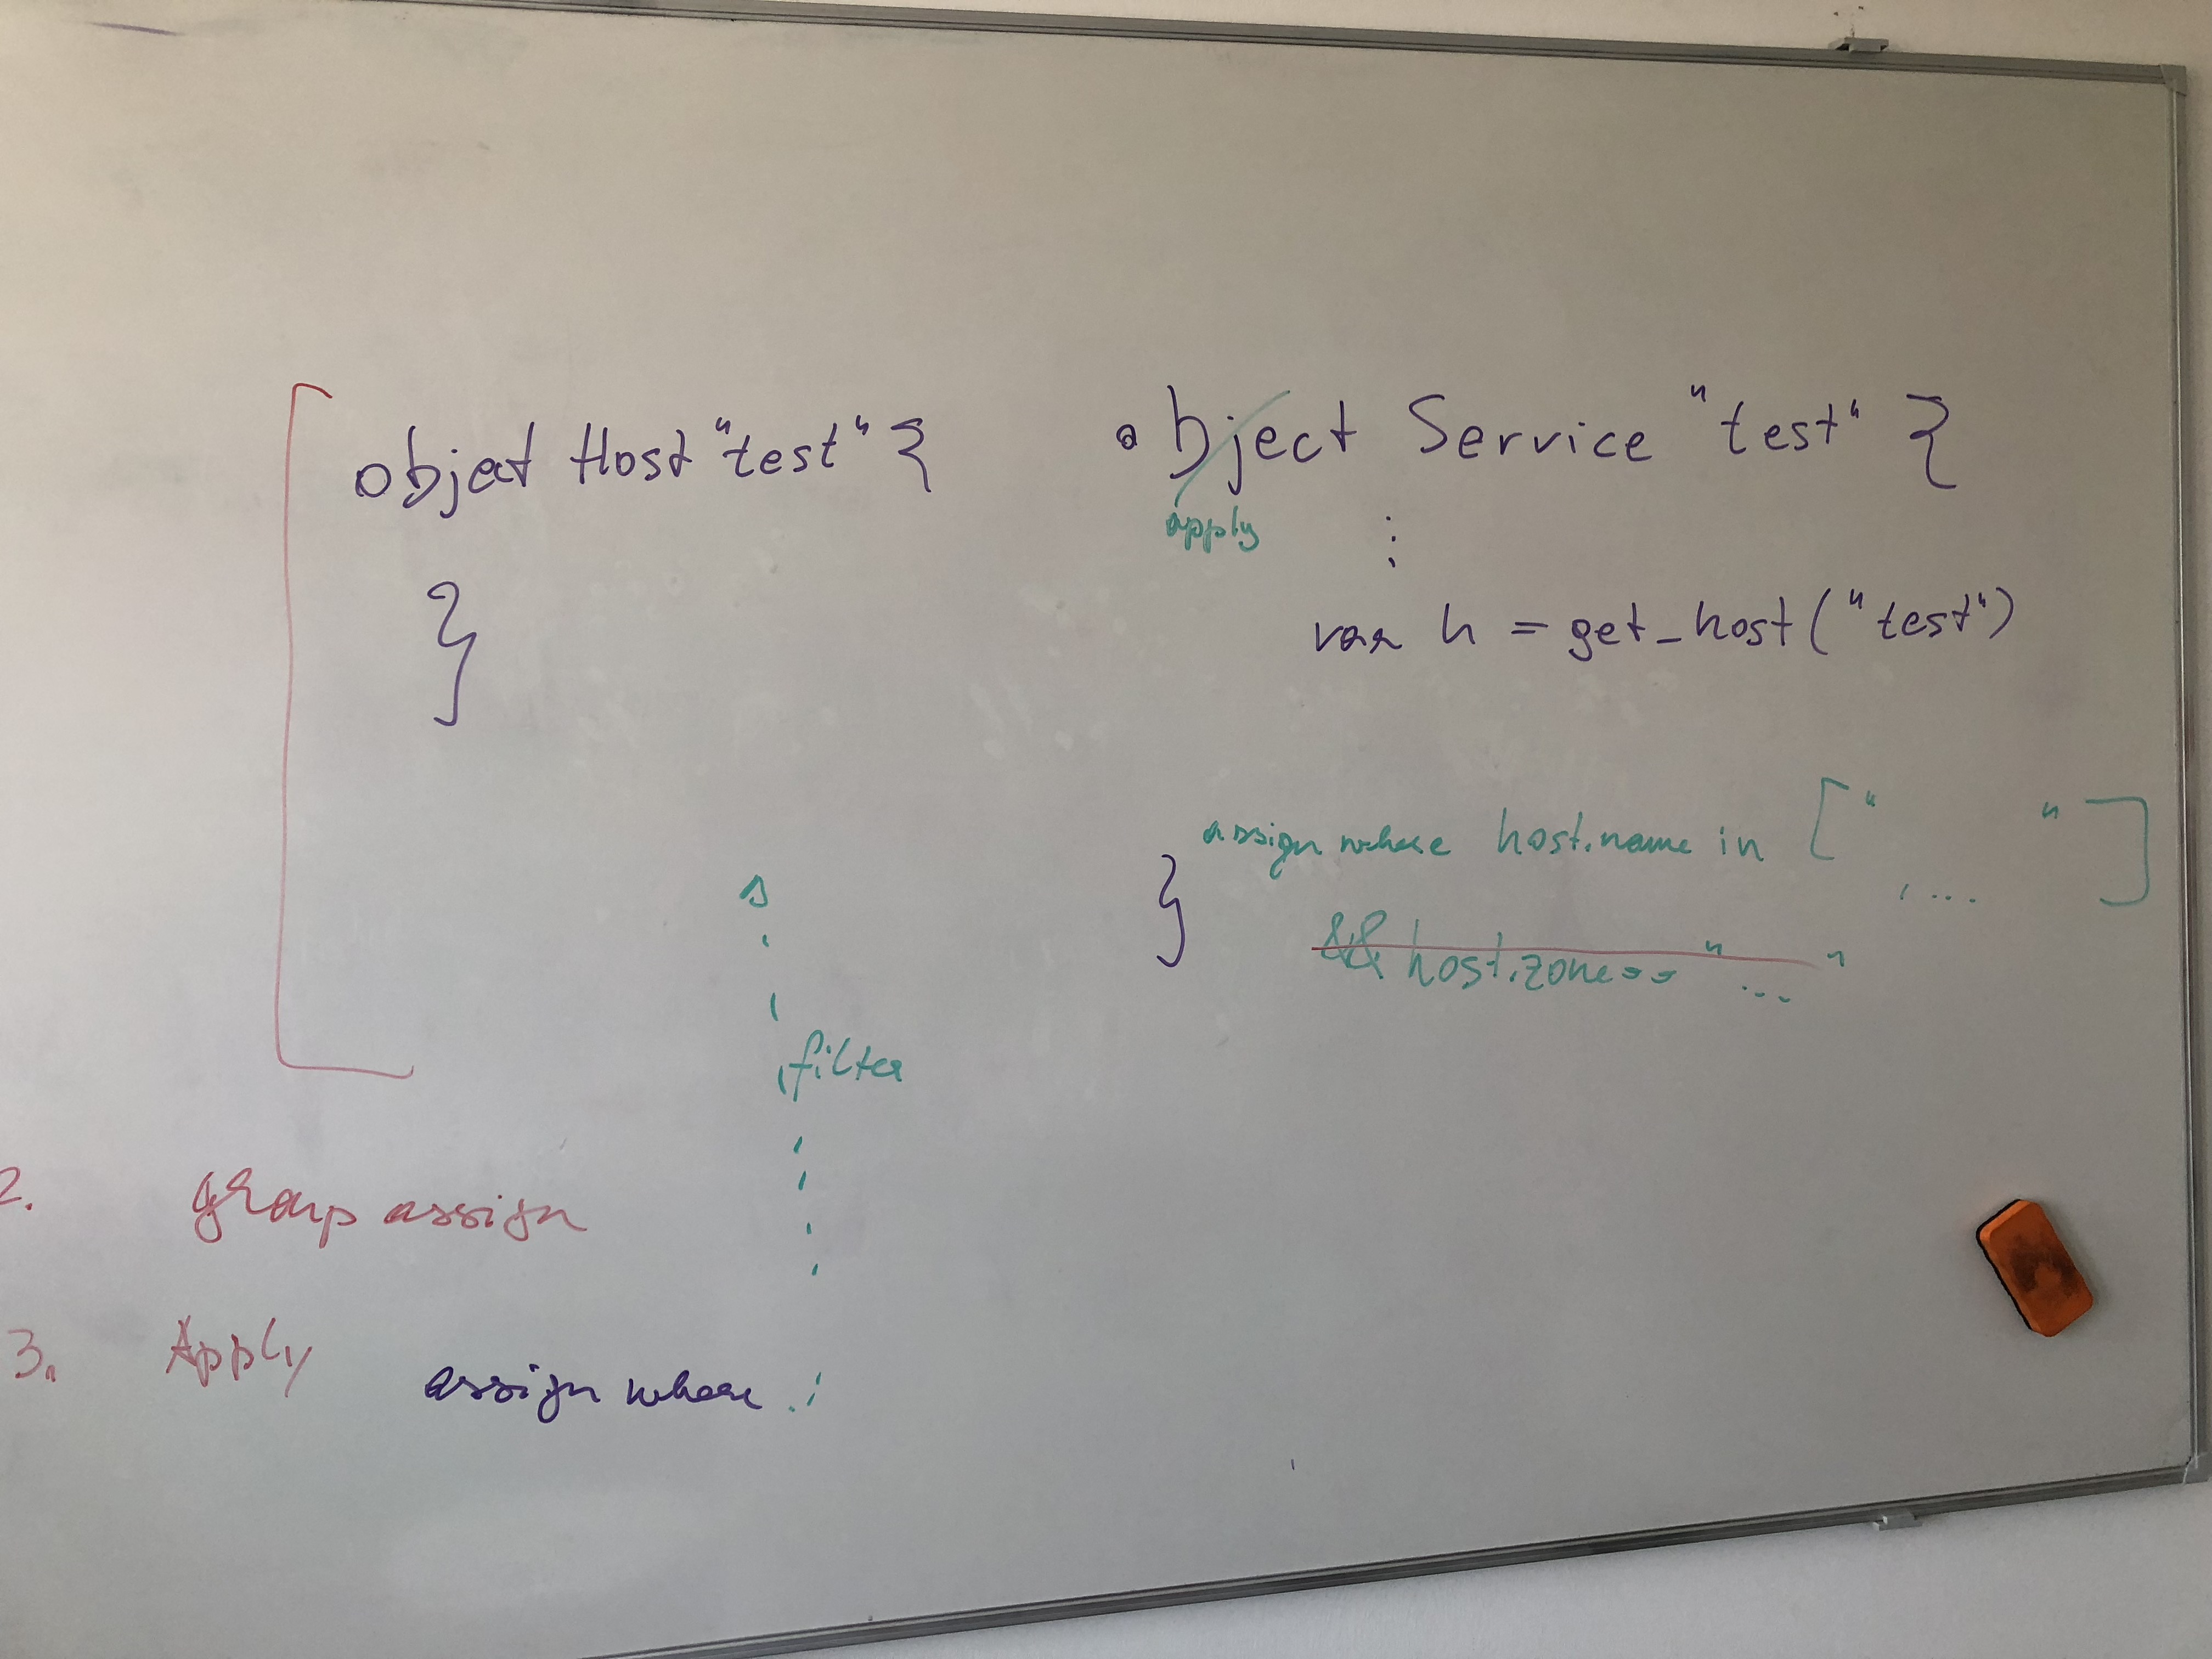 object Host "test" {
}
object Service "test" {
apply
⋮
var h = get_host("test")
assign where host.name in [" , .... "]
}
&& host.zone == "..."
s
filter
2. group assign
3. Apply
assign where